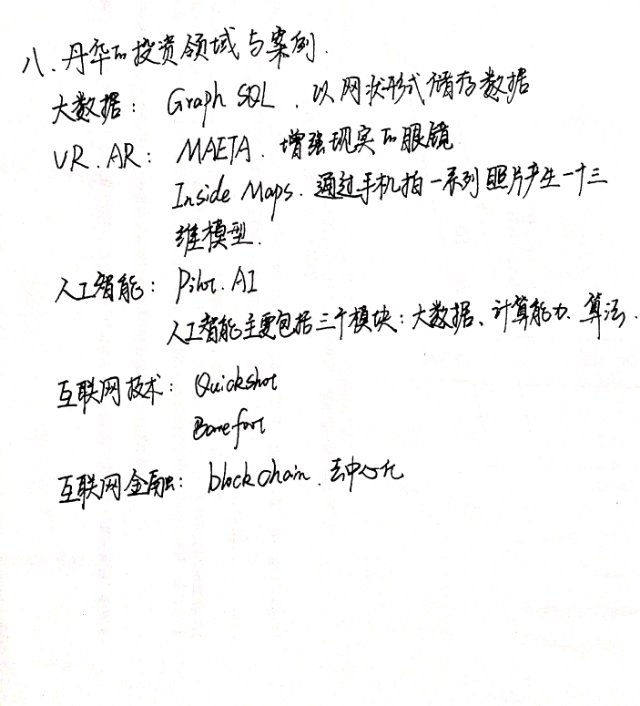 八、丹华的投资领域与案例.
大数据: Graph SQL. 以网状形式储存数据
VR. AR: MAETA. 增强现实的眼镜
Inside Maps. 通过手机拍一系列照片产生一个三
维模型.
人工智能: Pilot. AI
人工智能主要包括三个模块: 大数据、计算能力、算法.
互联网技术: Quickshot
互联网金融: blockchain. 去中心化